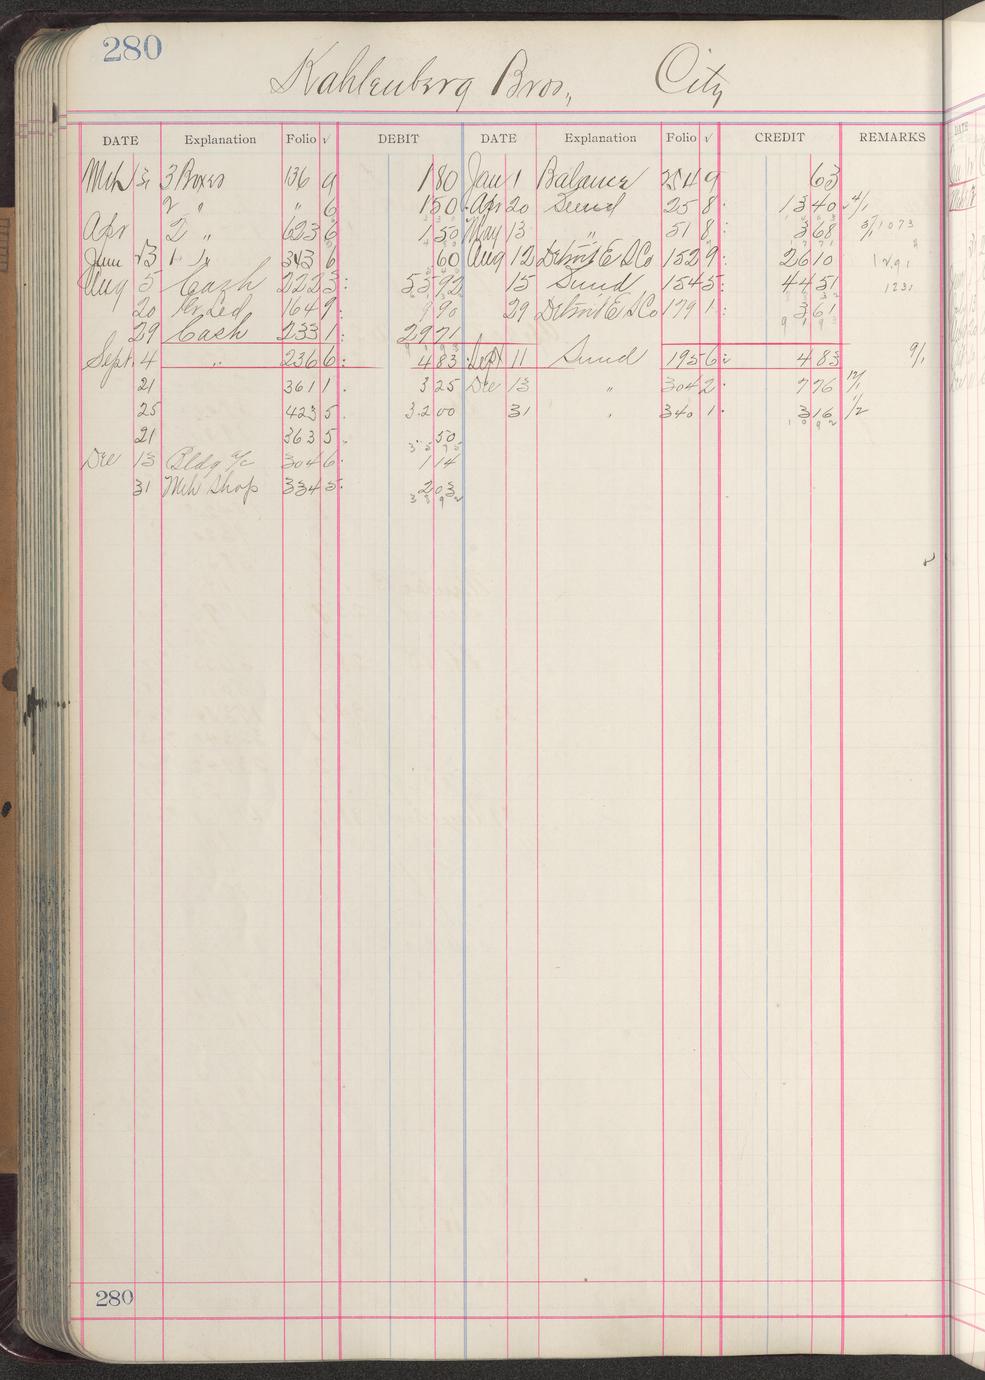 280
Kahlenberg Bros., City
DATE Explanation Folio √ DEBIT DATE Explanation Folio √ CREDIT REMARKS
Mch 31 3 Boxes 136 9 1 80 Jan 1 Balance 254 9 63
2 " " 6 1 50 Apr 20 Sund 25 8 13 40 4/1
Apr 2 " 623 6 1 50 May 13 " 51 8 3 68 5/1 1073
June 23 1 " 343 6 60 Aug 12 Detroit E S Co 152 9 26 10 1291
Aug 5 Cash 222 3 55 92 15 Sund 154 5 44 51 1231
20 Cr Led 164 9 90 29 Detroit E S Co 179 1 3 61
29 Cash 233 1 29 71
Sept. 4 " 236 6 4 83 Sept 11 Sund 195 6 4 83 9/1
21 361 1 3 25 Dec 13 " 304 2 7 76 12/1
25 423 5 32 00 31 " 340 1 3 16 1/2
21 363 5 50
Dec 13 Bldg a/c 304 6 1 14
31 Mch Shop 334 5 2 03
280